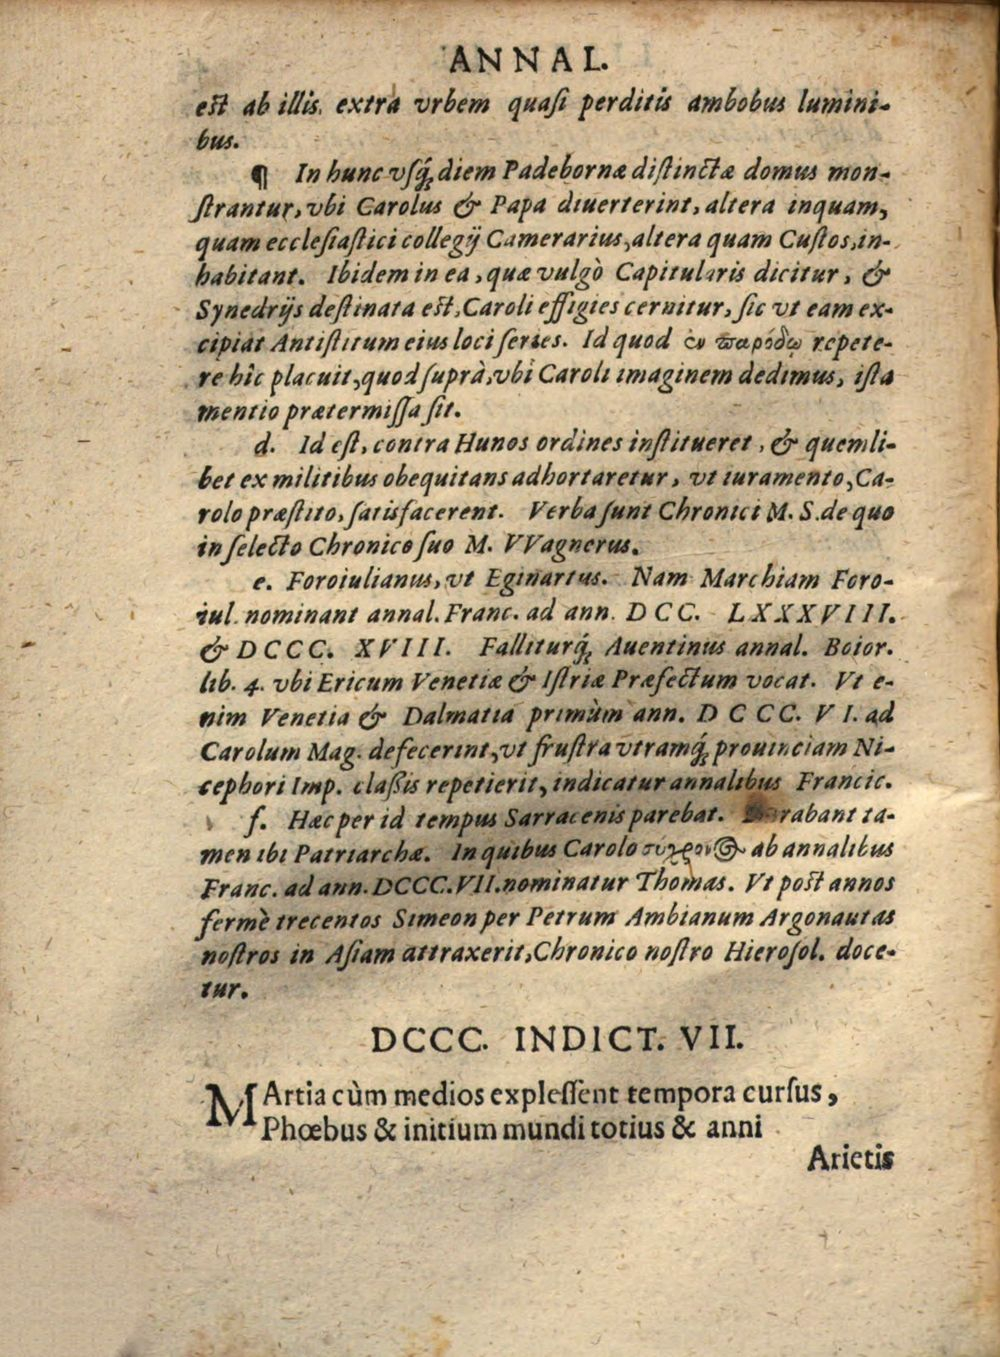 ANNAL.
est ab illis. extra vrbem quasi perditis ambobus lumini-
bus.
¶ In hunc vsq́; diem Padebornæ distinctæ domus mon-
strantur, vbi Carolus & Papa diuerterint, altera inquam,
quam ecclesiastici collegij Camerarius, altera quam Custos, in-
habitant. Ibidem in ea, quæ vulgò Capitularis dicitur, &
Synedrijs destinata est, Caroli effigies cernitur, sic vt eam ex-
cipiat Antistitum eius loci series. Id quod ἐν παρόδῳ repete-
re hîc placuit, quod suprà, vbi Caroli imaginem dedimus, ista
mentio prætermissa sit.
d. Id est, contra Hunos ordines institueret, & quemli-
bet ex militibus obequitans adhortaretur, vt iuramento, Ca-
rolo præstito, satisfacerent. Verba sunt Chronici M. S. de quo
in selecto Chronico suo M. VVagnerus.
e. Foroiulianus, vt Eginartus. Nam Marchiam Foro-
iul. nominant annal. Franc. ad ann. DCC. LXXXVIII.
& DCCC. XVIII. Falliturq́; Auentinus annal. Boior.
lib. 4. vbi Ericum Venetiæ & Istriæ Præfectum vocat. Vt e-
nim Venetia & Dalmatia primùm ann. DCCC. VI. ad
Carolum Mag. defecerint, vt frustra vtramq́; prouinciam Ni-
cephori Imp. classis repetierit, indicatur annalibus Francic.
f. Hæc per id tempus Sarracenis parebat. Durabant ta-
men ibi Patriarchæ. In quibus Carolo σύχρονος ab annalibus
Franc. ad ann. DCCC. VII. nominatur Thomas. Vt post annos
fermè trecentos Simeon per Petrum Ambianum Argonautas
nostros in Asiam attraxerit, Chronico nostro Hierosol. doce-
tur.
DCCC. INDICT. VII.
MArtia cùm medios explessent tempora cursus,
Phœbus & initium mundi totius & anni
Arietis